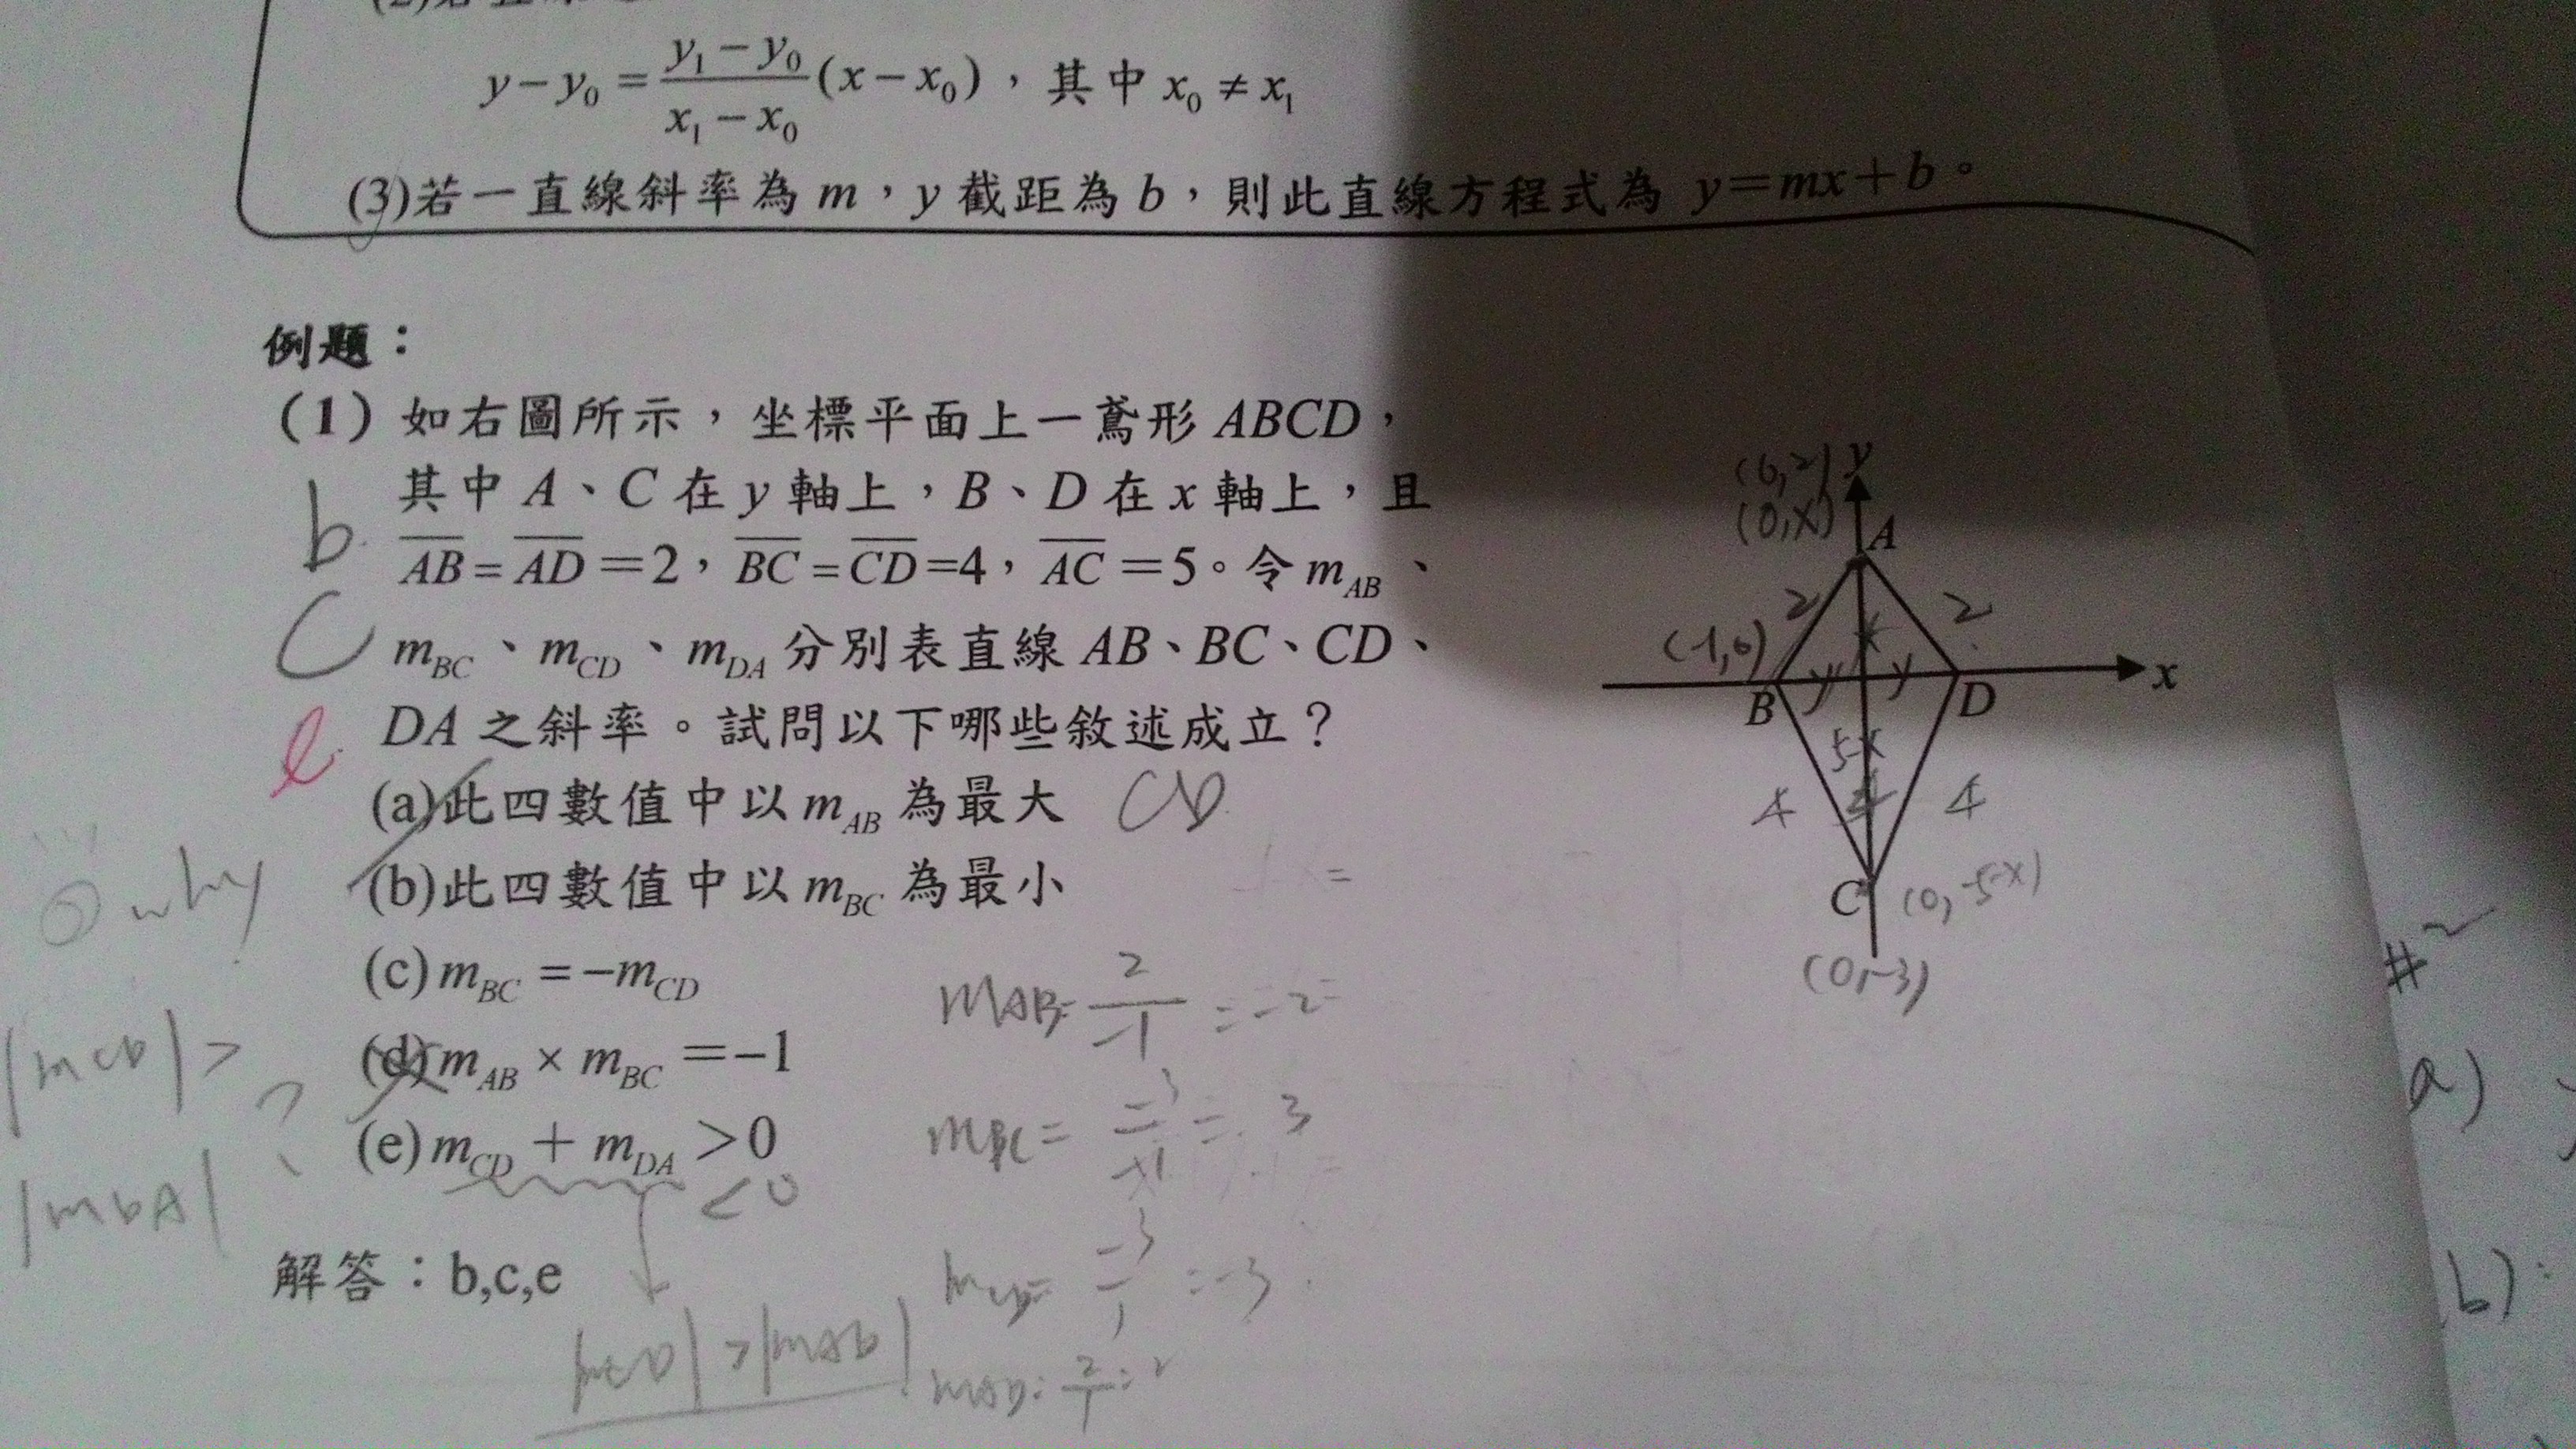 y-y₀=\frac{y₁-y₀}{x₁-x₀}(x-x₀)，其中 x₀≠x₁
(3)若一直線斜率為 m，y 截距為 b，則此直線方程式為 y=mx+b。
例題：
(1) 如右圖所示，坐標平面上一鳶形 ABCD，
其中 A、C 在 y 軸上，B、D 在 x 軸上，且
\overline{AB}=\overline{AD}=2，\overline{BC}=\overline{CD}=4，\overline{AC}=5。令 m_{AB}、
m_{BC}、m_{CD}、m_{DA} 分別表直線 AB、BC、CD、
DA 之斜率。試問以下哪些敘述成立？
(a)此四數值中以 m_{AB} 為最大 CD
(b)此四數值中以 m_{BC} 為最小
(c) m_{BC}=-m_{CD}
(d) m_{AB}×m_{BC}=-1
(e) m_{CD}+m_{DA}>0
<0
解答：b,c,e
b
C
e
why
|mCD|>
|mDA|
?
|mCD|>|mAD|
mAB=\frac{2}{-1}=-2
mBC=\frac{-3}{-1}=3
mCD=\frac{-3}{1}=-3
mAD=\frac{2}{1}=2
y
(0,2)
(0,x)
A
2
x
2
(-1,0)
x
B
y
y
D
5-x
4
4
C
(0,-5-x)
(0,-3)
#
a)
b):